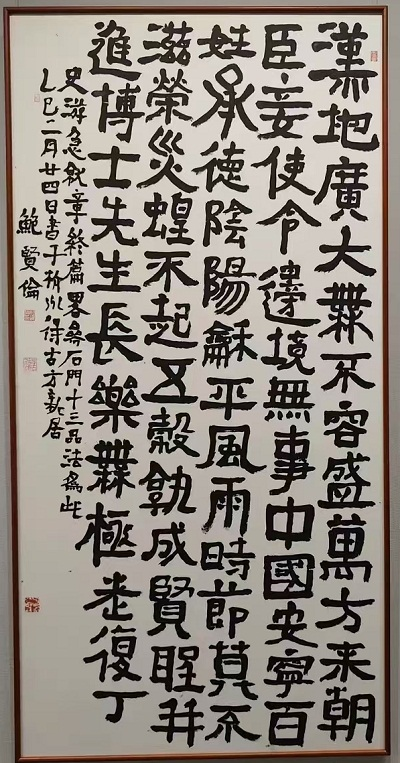 漢地廣大橆不容盛萬方来朝
臣妾使令邊境無事中國安寧百
姓承德陰陽龢平風雨時節莫不
滋榮災蝗不起五穀孰成賢聖并
進博士先生長樂橆極老復丁
史游急就章終篇畧參石門十三品法為此
乙巳二月廿四日書于杭州古方居
鮑賢倫